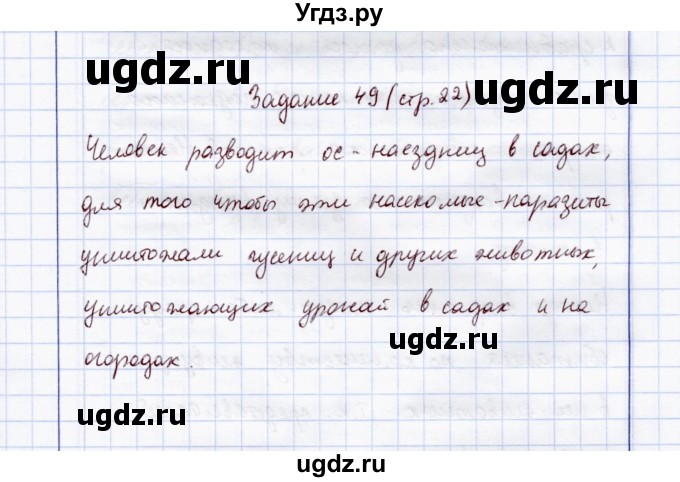 Угдз.ру
ugdz.ru ugdz.ru
Задание 49 (стр. 22) ugdz.ru
Человек разводит ос-наездниц в садах,
для того чтобы эти насекомые-паразиты
уничтожали гусениц и других животных,
ugdz.ru
уничтожающих урожай в садах и на
огородах.
ugdz.ru
ugdz.ru ugdz.ru
ugdz.ru